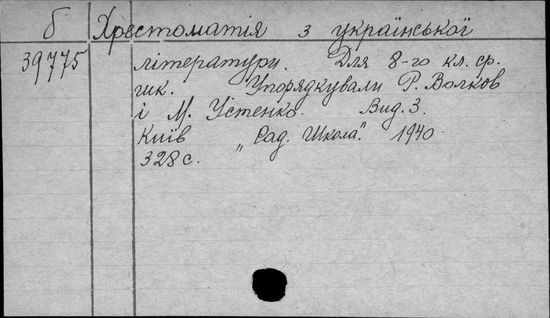 б Хрестоматія з української
39775 літератури. Для 8-го кл. ср.
шк. Упорядкували Р. Волков
і М. Устенко. Вид. 3.
Київ „Рад. Школа". 1940.
328 с.